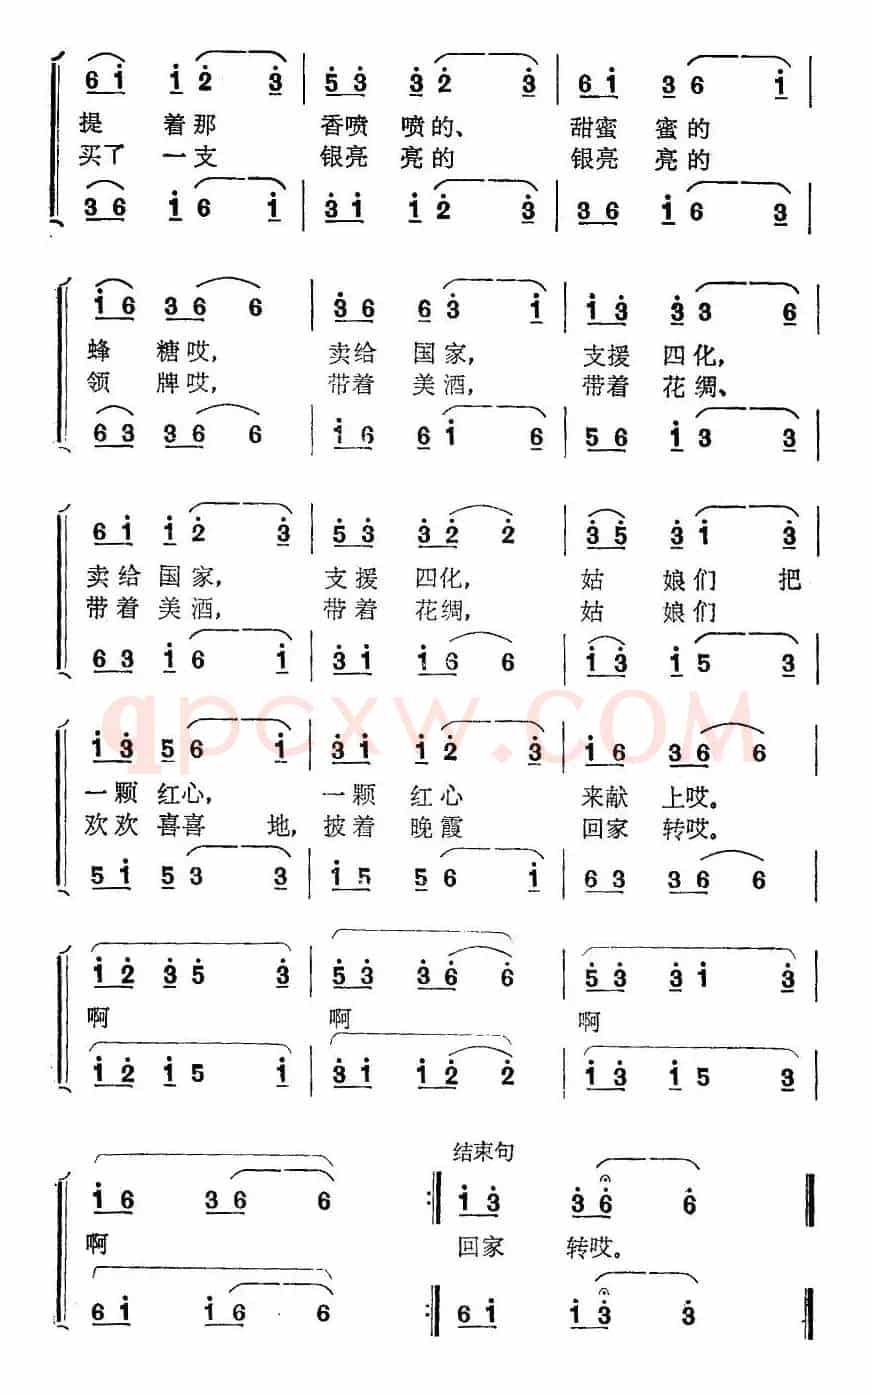 6 1 1 2 3 | 5 3 3 2 3 | 6 1 3 6 1 |
提 着那 香喷 喷的、 甜蜜 蜜的
买了 一支 银亮 亮的 银亮 亮的
3 6 1 6 1 | 3 1 1 2 3 | 3 6 1 6 3 |
1 6 3 6 6 | 3 6 6 3 1 | 1 3 3 3 6 |
蜂 糖哎, 卖给 国家, 支援 四化,
领 牌哎, 带着 美酒, 带着 花绸、
6 3 3 6 6 | 1 6 6 1 6 | 5 6 1 3 3 |
6 1 1 2 3 | 5 3 3 2 2 | 3 5 3 1 3 |
卖给 国家, 支援 四化, 姑 娘们 把
带着 美酒, 带着 花绸, 姑 娘们
6 3 1 6 1 | 3 1 1 6 6 | 1 3 1 5 3 |
qpcxw.COM
1 3 5 6 1 | 3 1 1 2 3 | 1 6 3 6 6 |
一颗 红心, 一颗 红心 来献 上哎。
欢欢 喜喜 地, 披着 晚霞 回家 转哎。
5 1 5 3 3 | 1 5 5 6 1 | 6 3 3 6 6 |
1 2 3 5 3 | 5 3 3 6 6 | 5 3 3 1 3 |
啊 啊 啊
1 2 1 5 1 | 3 1 1 2 2 | 1 3 1 5 3 |
结束句
1 6 3 6 6 :‖ 1 3 3 6 6 ‖
啊 回家 转哎。
6 1 1 6 6 :‖ 6 1 1 3 3 ‖